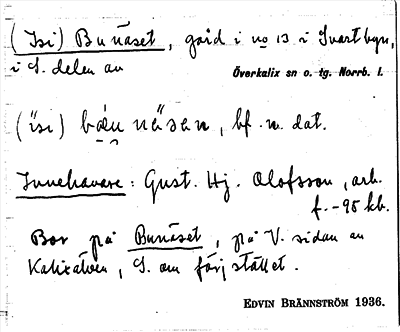 (Isi) Bunäset, gård i no 13 i Svartbyn,
i S. delen av
Överkalix sn o. tg. Norrb. l.
(ïsi) bǫ́ṷnä̀sən, bf. n. dat.
Innehavare: Gust. Hj. Olofsson, arb.
f. -95 kb.
Bor på Bunäset, på V. sidan av
Kalixälven, S. om färjstället.
EDVIN BRÄNNSTRÖM 1936.